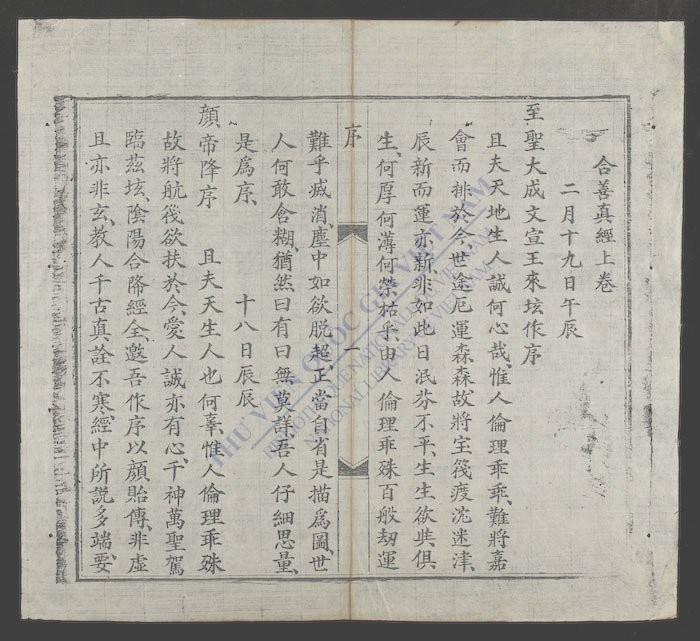 合善真經上卷
二月十九日午辰
至聖大成文宣王來坛作序
且夫天地生人誠何心哉、惟人倫理乖乖、難將嘉
會而排於今、世途厄運森森故將宝筏渡沈迷津、
辰新而運亦新非如此日泯芬不平、生生欲柴俱
生、何厚何薄何荣枯乎、由人倫理乖殊百般刼運
序
一
難乎烕消、塵中如欲脱超、正當自省是描為圖、世
人何敢含糊、猶然曰有曰無莫詳、吾人仔細思量、
是為序、
十八日辰辰
顏帝降序
且夫天生人也何辜、惟人倫理乖殊
故將航筏欲扶於今、愛人誠亦有心、千神萬聖駕
臨兹坛、陰陽合降經全、邀吾作序以顔貽傳、非虚
且亦非玄、教人千古真詮不寒、經中所説多端、要
THƯ VIỆN QUỐC GIA VIỆT NAM
NATIONAL LIBRARY OF VIETNAM